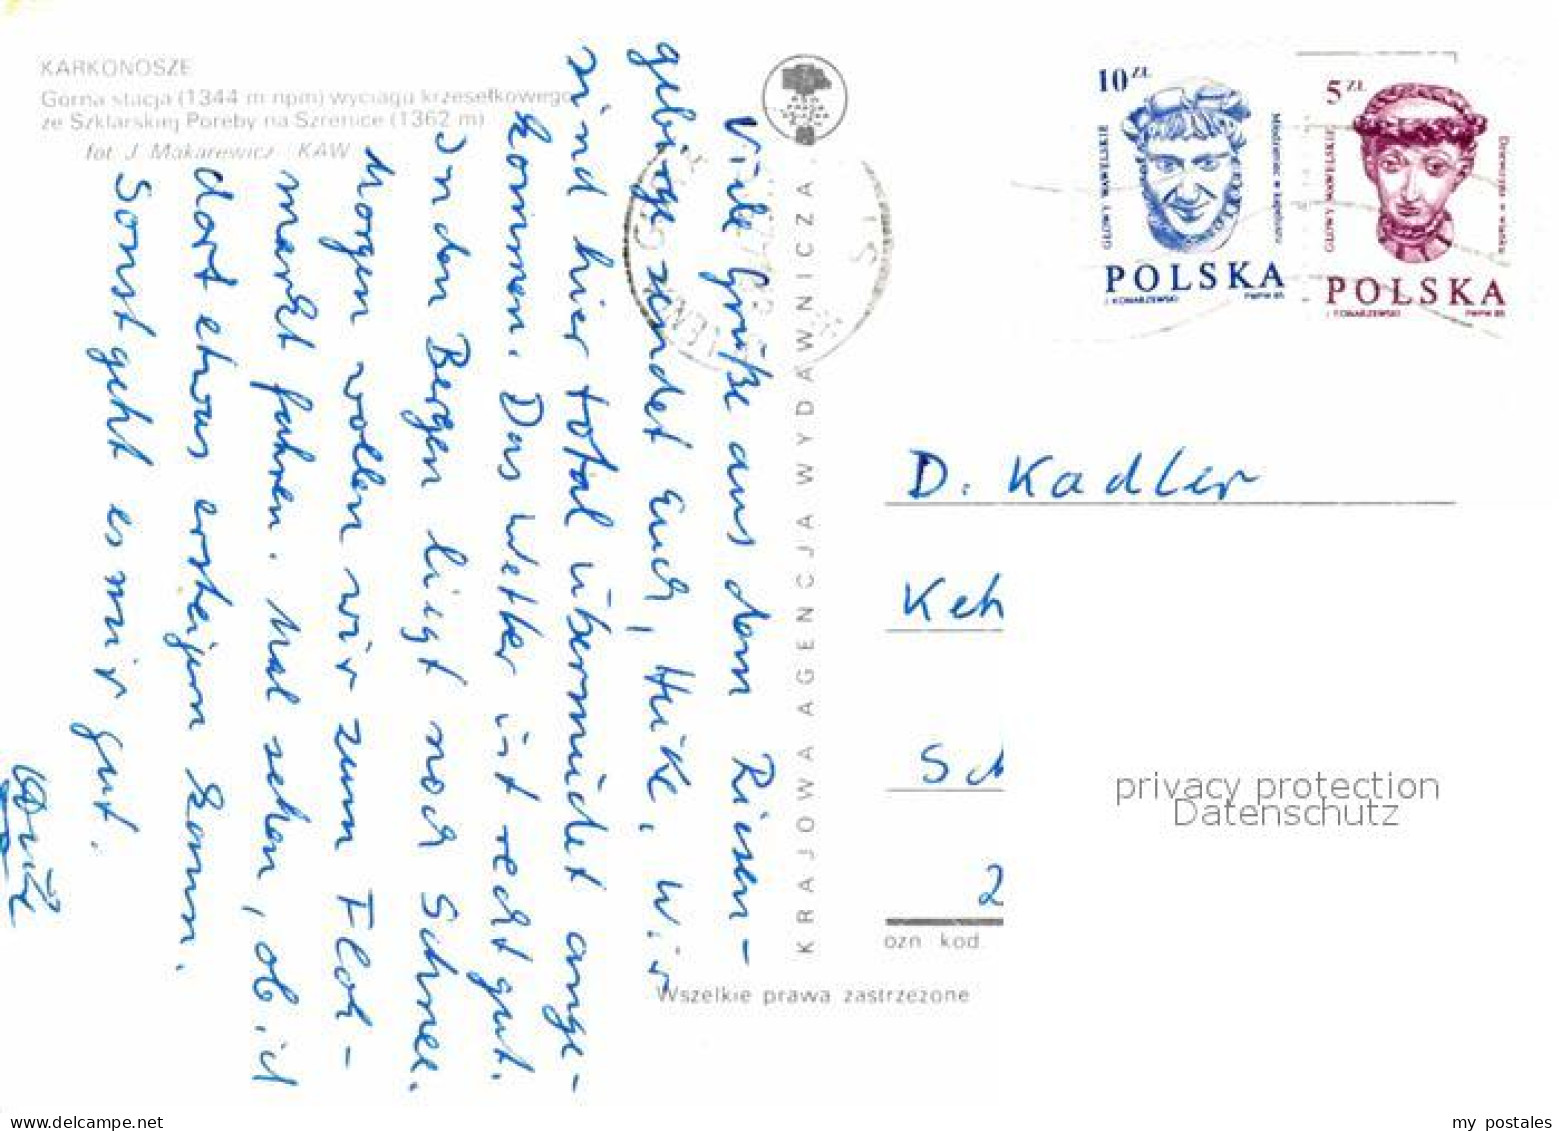 KARKONOSZE
Górna stacja (1344 m npm) wyciągu krzesełkowego
ze Szklarskiej Poręby na Szrenicę (1362 m)
fot. J. Makarewicz - KAW
Viele Grüße aus dem Riesen-
gebirge sendet Euch, Heike. Wir
sind hier total übermüdet ange-
kommen. Das Wetter ist recht gut.
In den Bergen liegt noch Schnee.
Morgen wollen wir zum Floh-
markt fahren. Mal sehen, ob ich
dort etwas ersteigern kann.
Sonst geht es mir gut.
KRAJOWA AGENCJA WYDAWNICZA
10 ZŁ
GŁOWY WAWELSKIE
POLSKA
J. KONARZEWSKI
PWPW 85
5 ZŁ
GŁOWY WAWELSKIE
POLSKA
J. KONARZEWSKI
PWPW 85
D. Kadler
Keh
Sch
2
ozn kod
Wszelkie prawa zastrzeżone
privacy protection
Datenschutz
my_postales